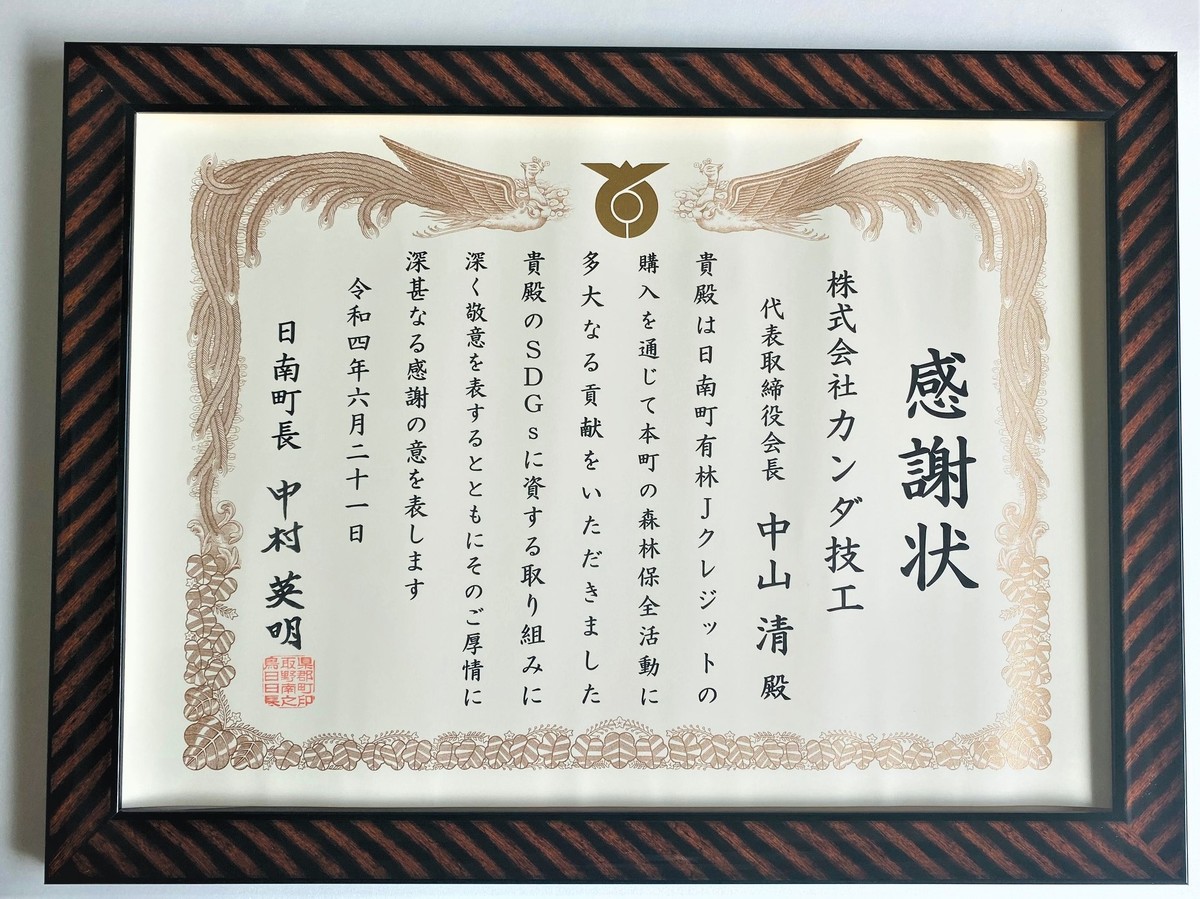 感謝状
株式会社カンダ技工
代表取締役会長 中山 清 殿
貴殿は日南町有林Jクレジットの
購入を通じて本町の森林保全活動に
多大なる貢献をいただきました
貴殿のSDGsに資する取り組みに
深く敬意を表するとともにそのご厚情に
深甚なる感謝の意を表します
令和四年六月二十一日
日南町長 中村 英明